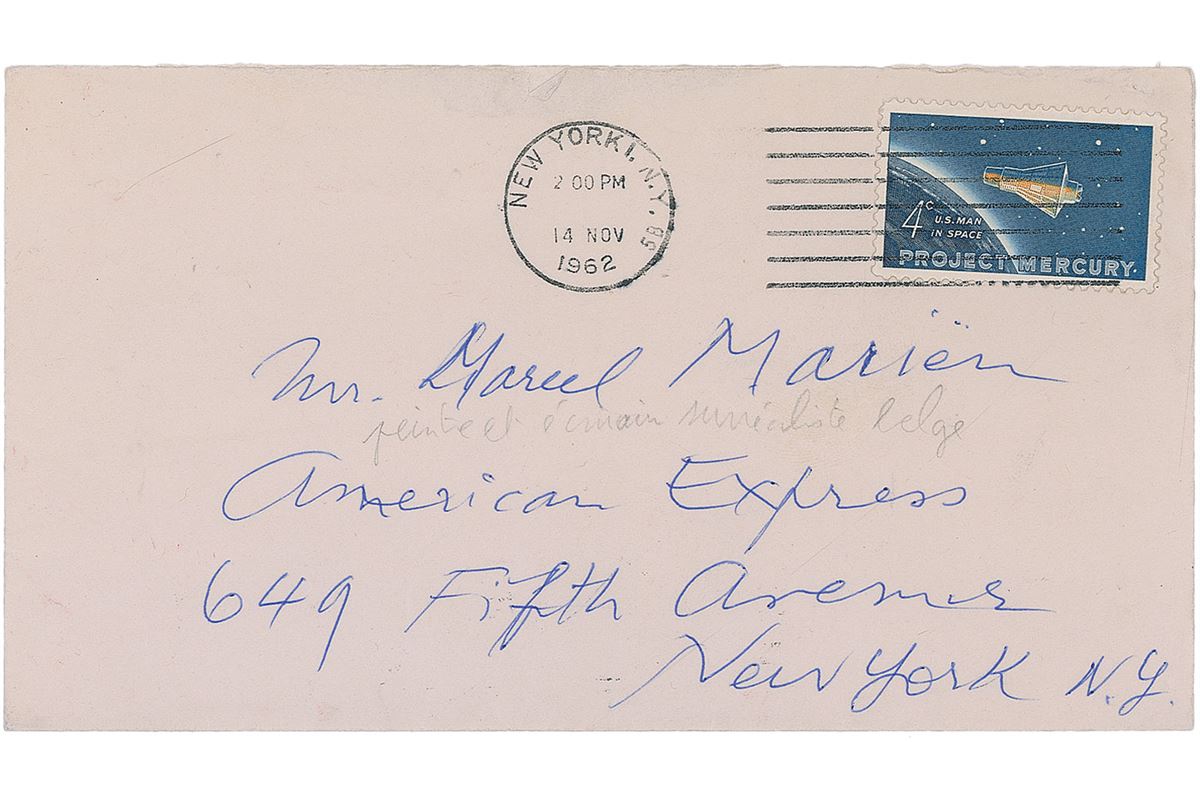 NEW YORK 1, N.Y. 58
2 00 PM
14 NOV
1962
4c
U.S. MAN
IN SPACE
PROJECT MERCURY
Mr. Marcel Mariën
peintre et écrivain surréaliste belge
American Express
649 Fifth Avenue
New York N.Y.